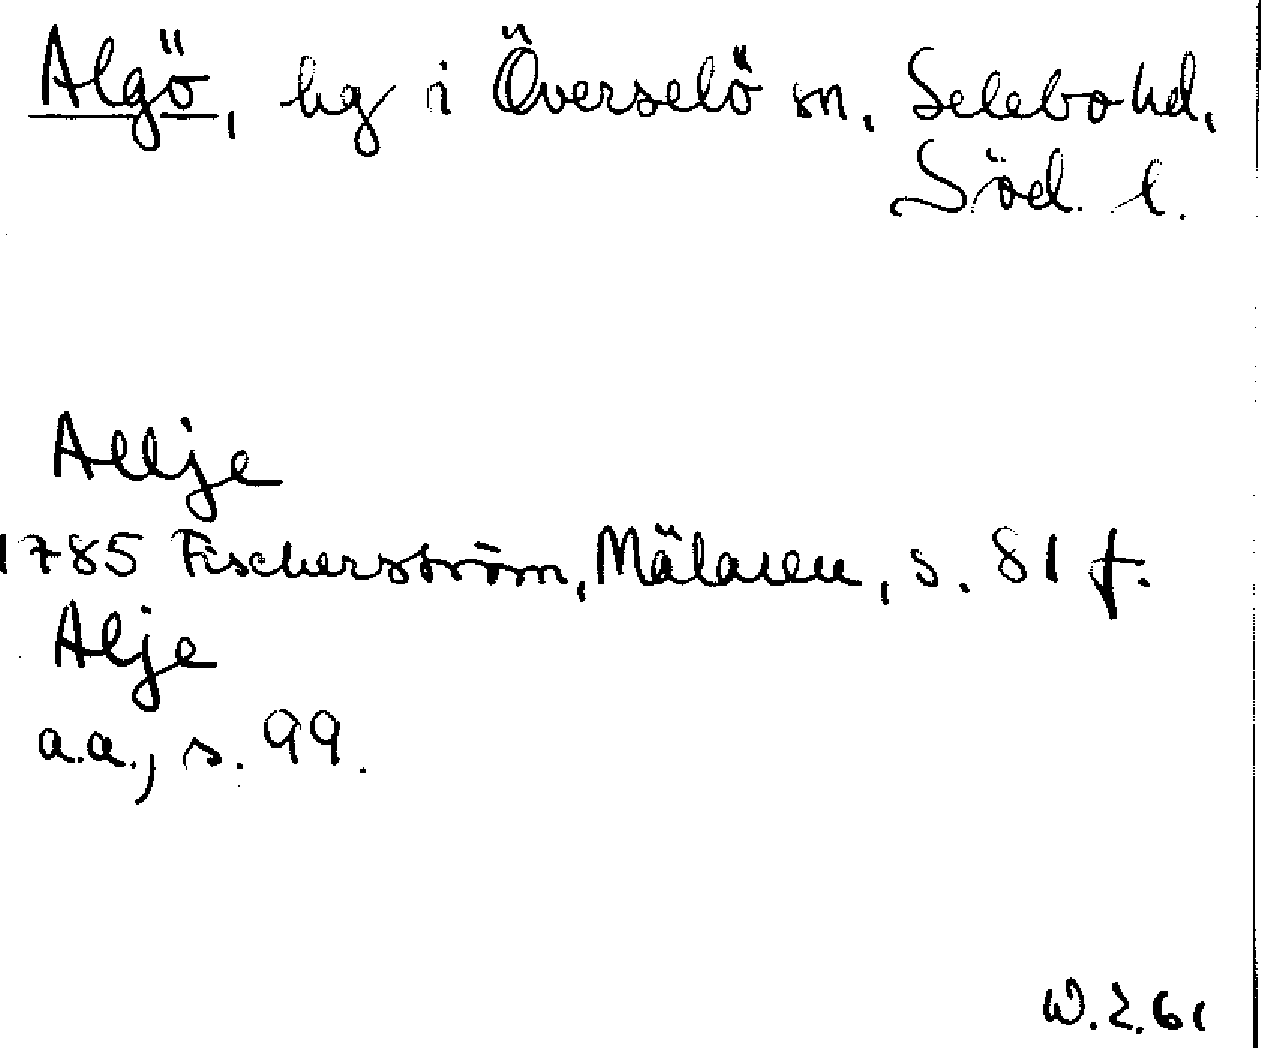 Algö, hg i Överselö sn, Selebo hd,
Söd. l.
Allje
1785 Fischerström, Mälaren, s. 81 f.
Alje
a.a., s. 99.
W.Z.61